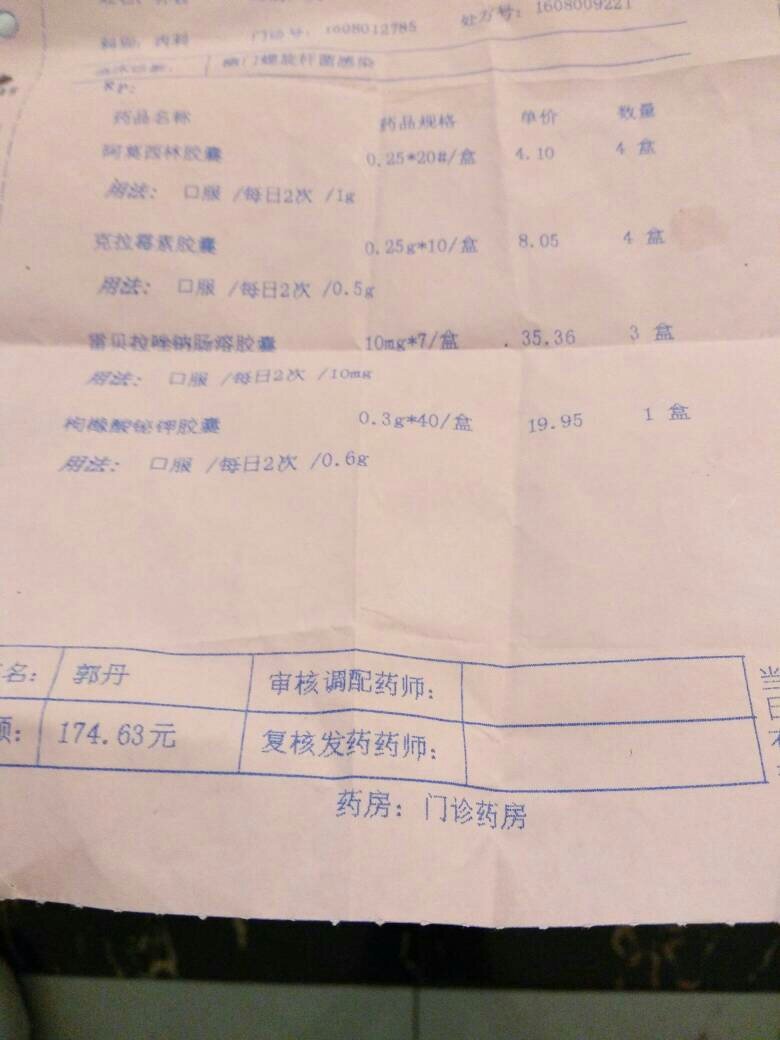 科别: 内科 门诊号: 1608012785 处方号: 1608009221
幽门螺旋杆菌感染
RP:
药品名称 药品规格 单价 数量
阿莫西林胶囊 0.25*20#/盒 4.10 4 盒
用法: 口服 /每日2次 /1g
克拉霉素胶囊 0.25g*10/盒 8.05 4 盒
用法: 口服 /每日2次 /0.5g
雷贝拉唑钠肠溶胶囊 10mg*7/盒 35.36 3 盒
用法: 口服 /每日2次 /10mg
枸橼酸铋钾胶囊 0.3g*40/盒 19.95 1 盒
用法: 口服 /每日2次 /0.6g
名: 郭丹 审核调配药师:
额: 174.63元 复核发药药师:
药房: 门诊药房
当
日